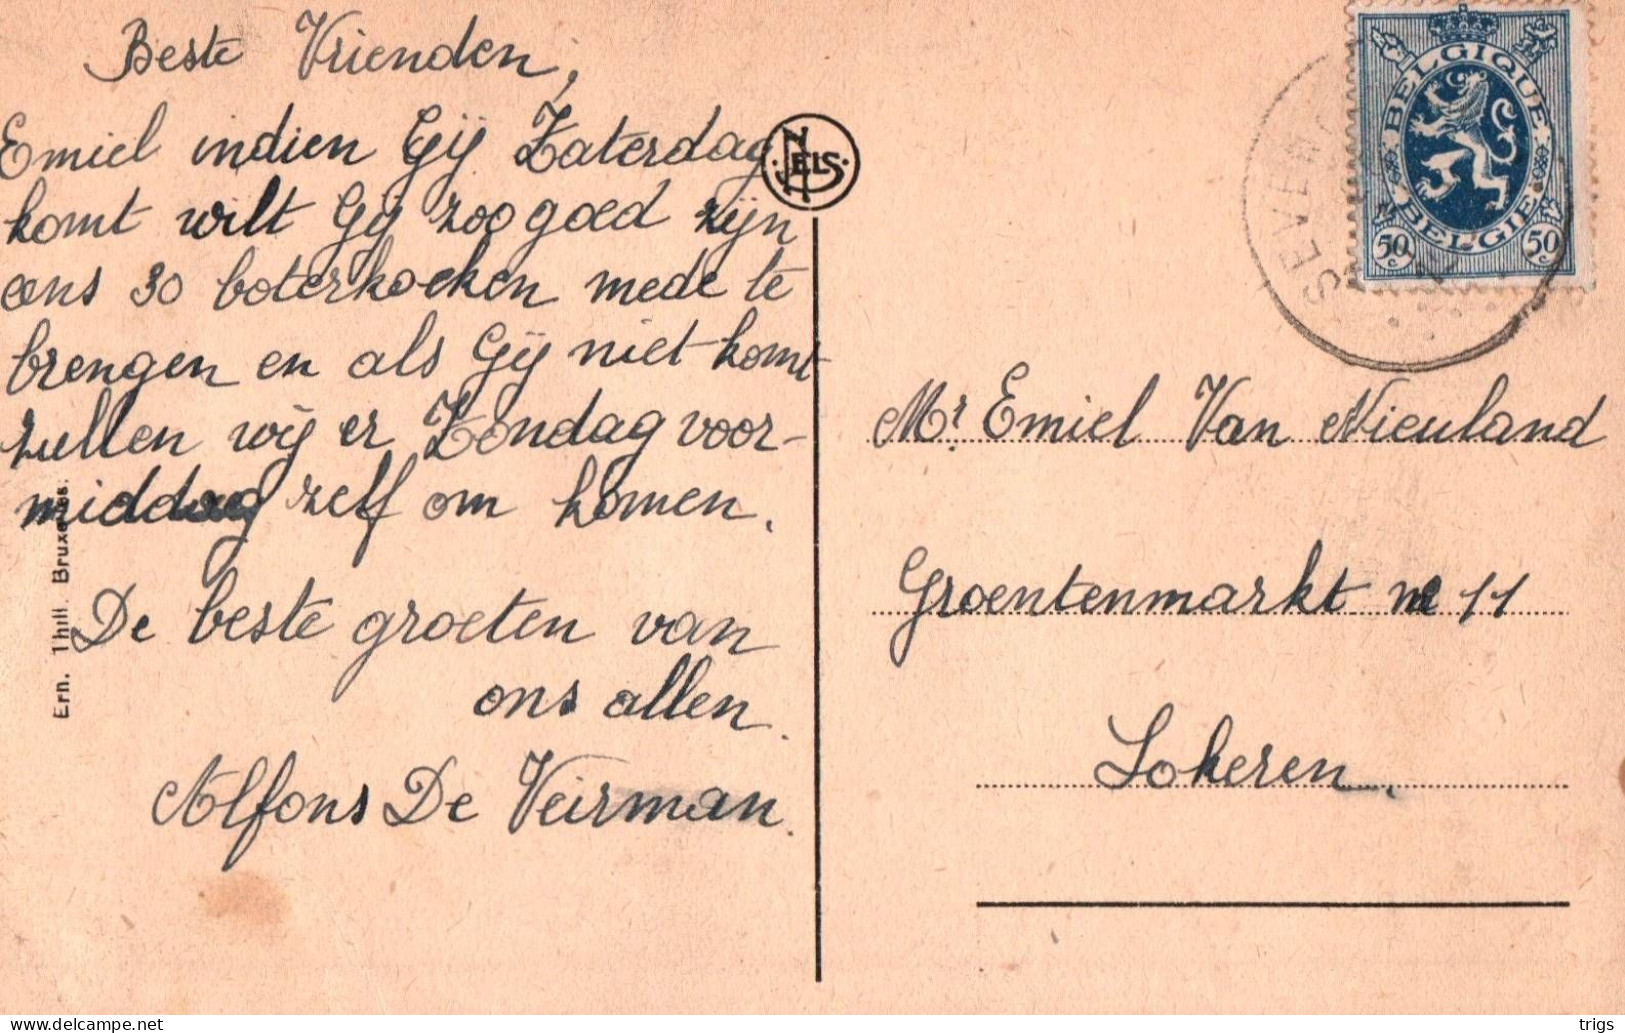 Beste Vrienden,
Emiel indien Gij Zaterdag
komt wilt Gij zoo goed zijn
eens 30 boterkoeken mede te
brengen en als Gij niet komt
zullen wij er Zondag voor-
middag zelf om komen.
De beste groeten van
ons allen.
Alfons De Veirman.
Ern. Thill. Bruxelles.
NELS
BELGIQUE
BELGIE
50 c
50 c
SEVE
Mr Emiel Van Nieuland
Groentenmarkt 11
Lokeren.
delcampe.net
trigs